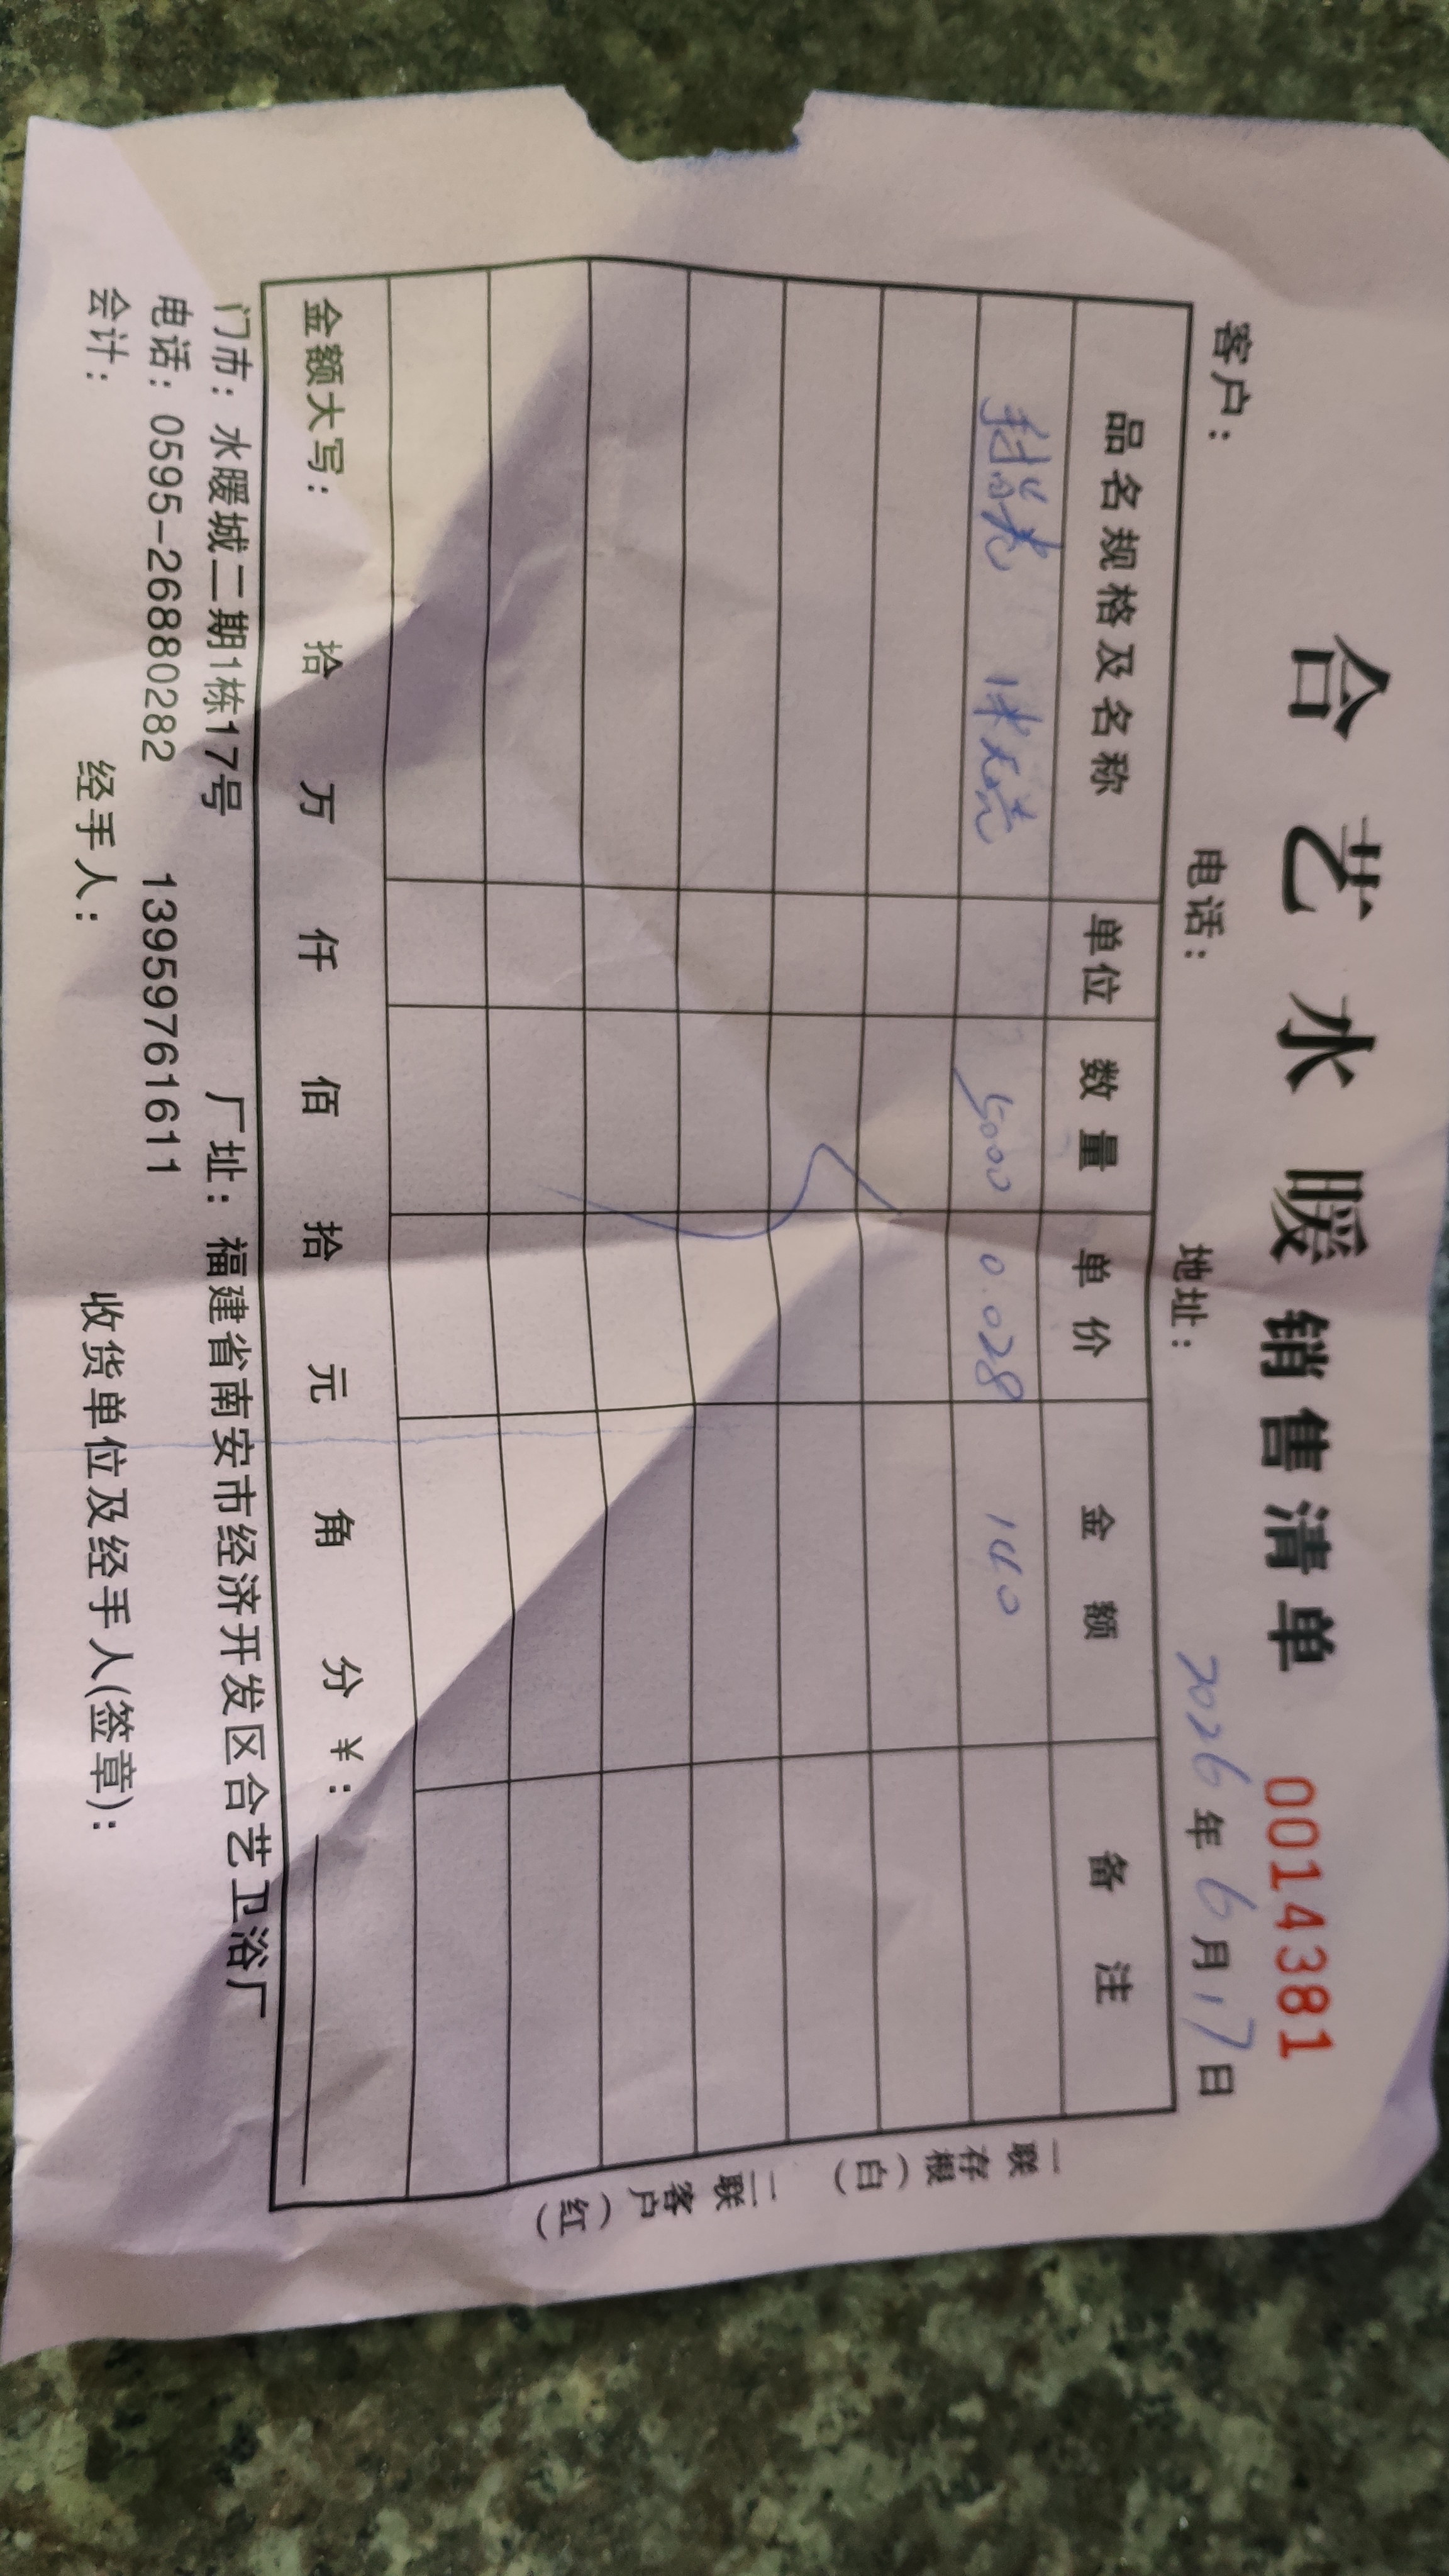 合艺水暖销售清单 0014381
客户： 电话： 地址： 2026年6月17日
品名规格及名称 单位 数量 单价 金额 备注
5000 0.028 140
金额大写： 拾 万 仟 佰 拾 元 角 分 ¥：
门市：水暖城二期1栋17号 厂址：福建省南安市经济开发区合艺卫浴厂
电话：0595-26880282 13959761611
会计： 经手人： 收货单位及经手人(签章)：
一联存根（白） 二联客户（红）